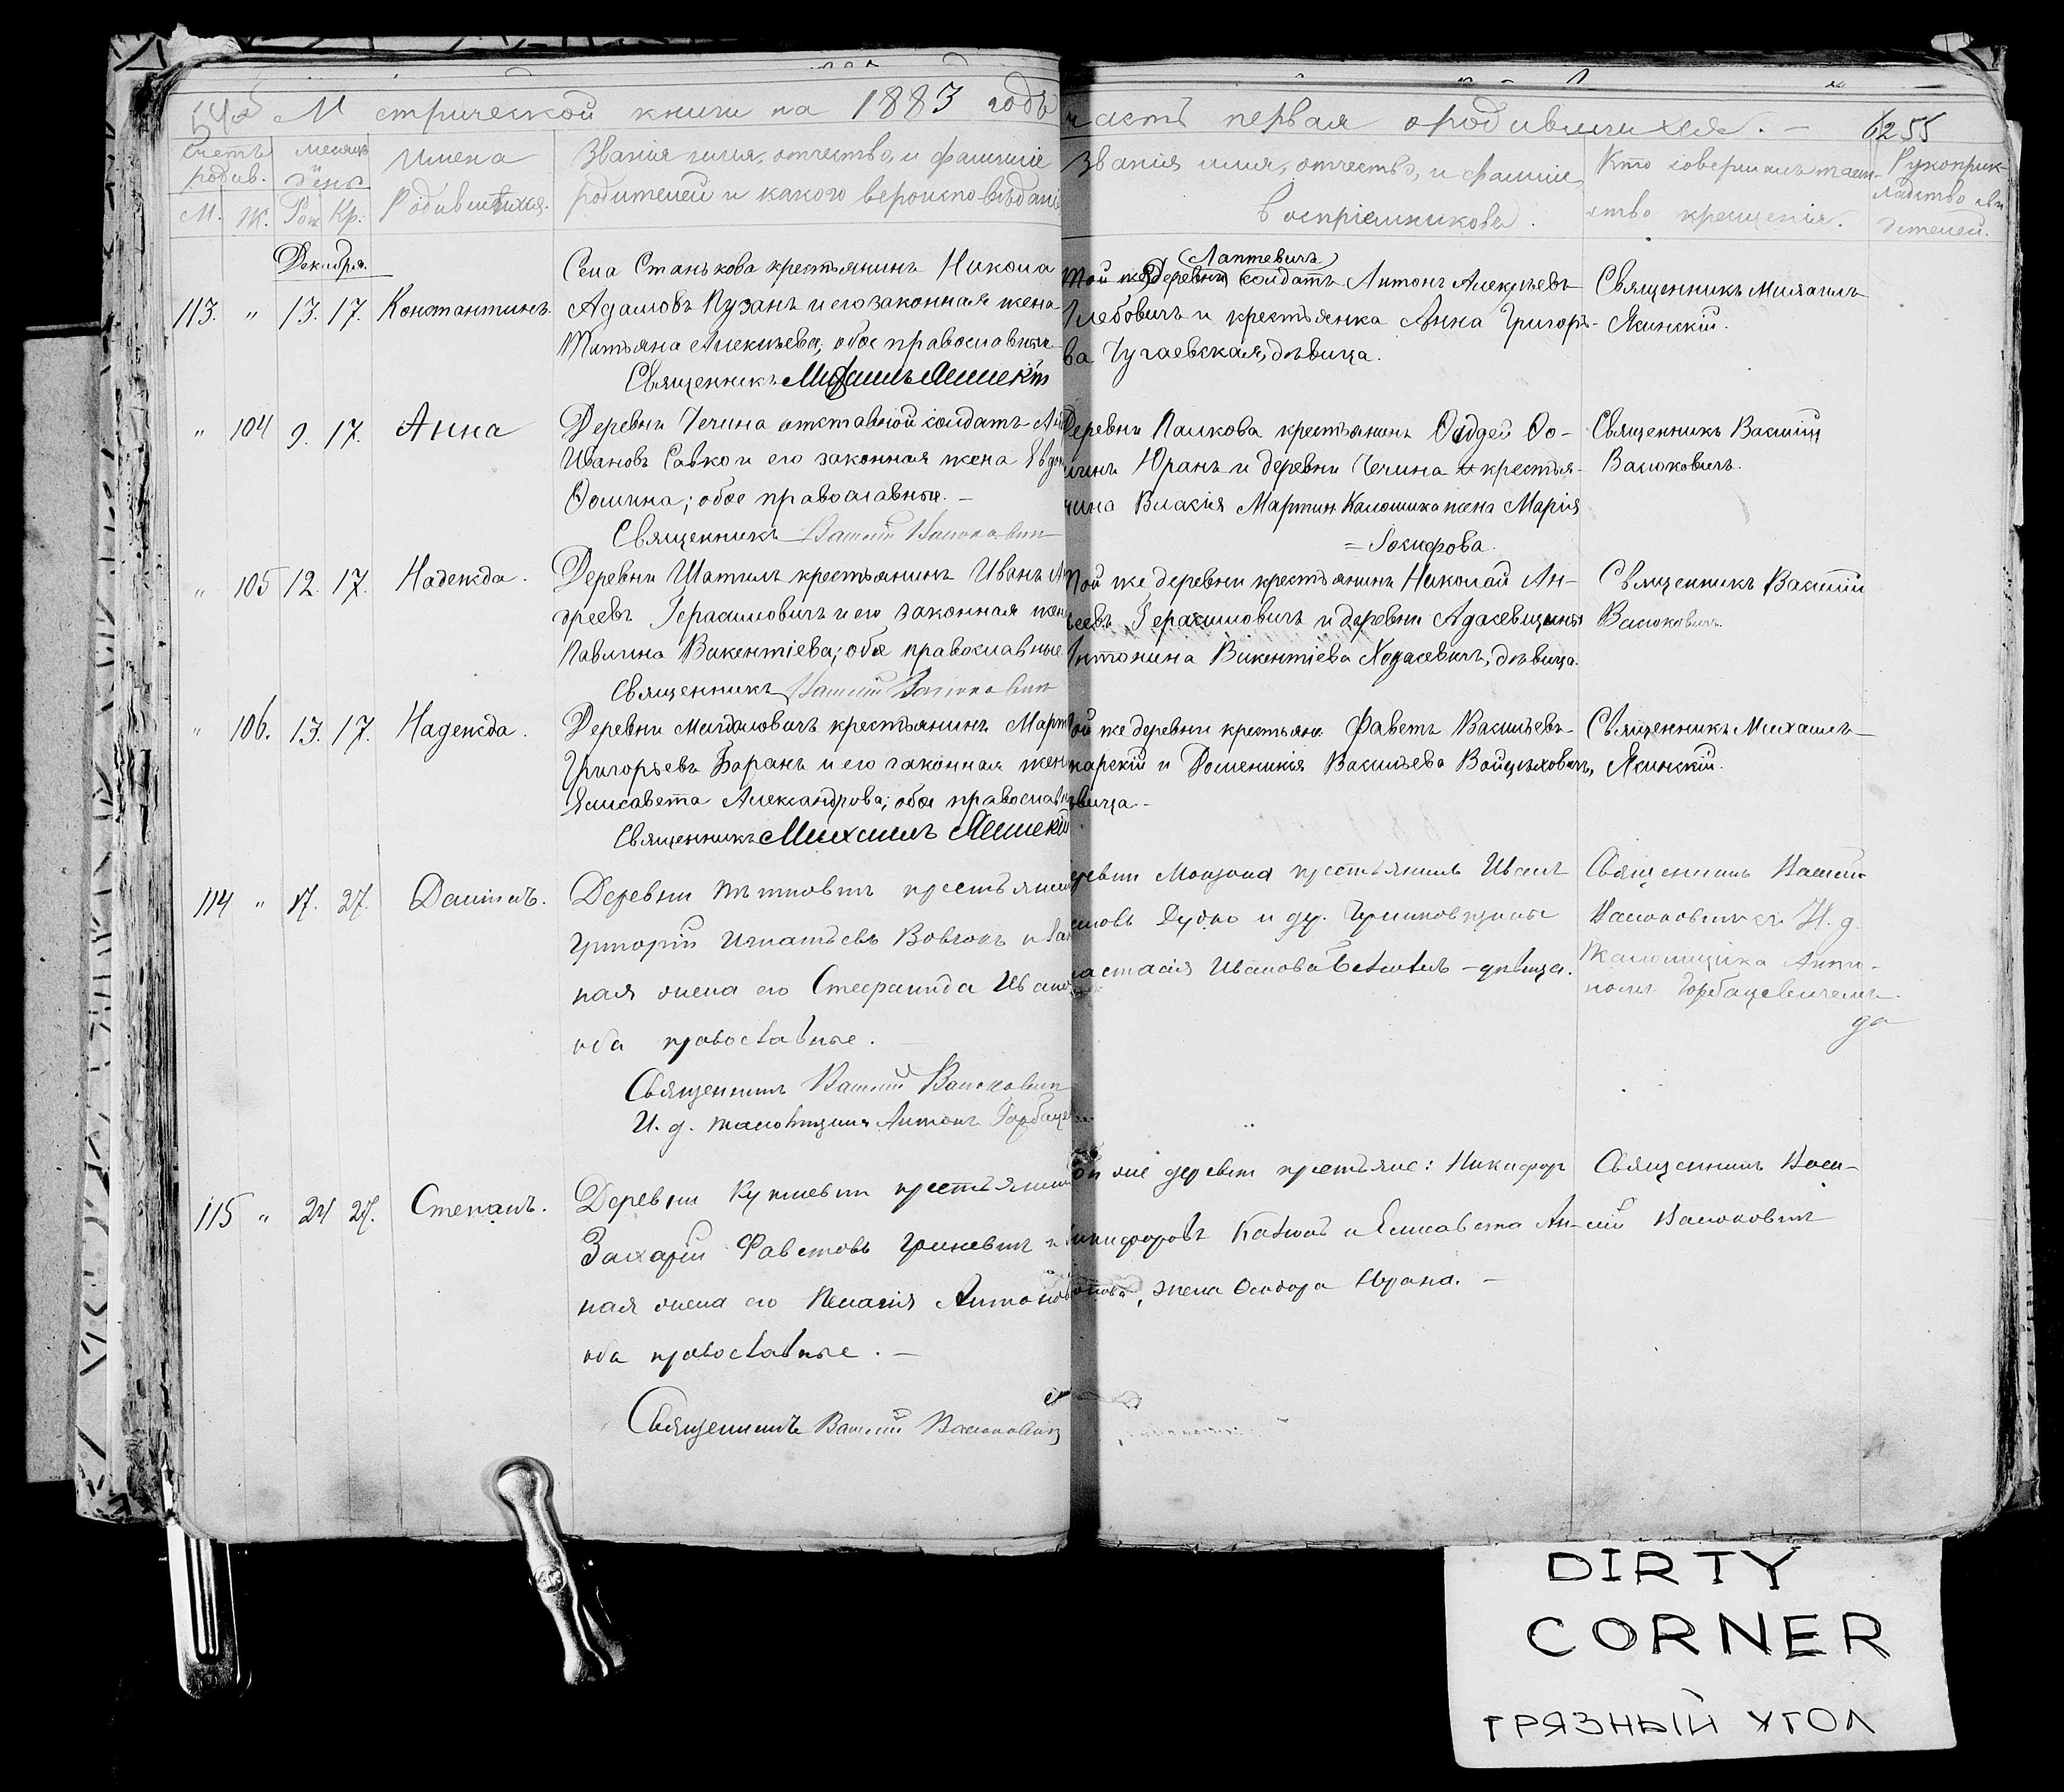 Метрической книги на 1883 годъ часть первая о родившихся. 6255
Счетъ родив. Месяцъ и день Имена Родившихся. Звания имя, отчество, и фамилие родителей и какого вероисповѣдания
М. Ж. Рож Кр.
Звания имя, отчество, и фамилие Воспріемниковъ.
Кто совершилъ таин-
ство крещения.
Рукоприк-
ладство сви
детелей.
Декабря.
113. " 13. 17. Константинъ.
Села Станькова крестьянинъ Никола
Адамовъ Пузанъ и его законная жена
Татьяна Алексѣева, обое православные
Священникъ Михаилъ
Лаптевичъ
Той же деревни солдатъ Антонъ Алексѣевъ
Глебовичъ и крестьянка Анна Григорь-
ва Чугаевская, дѣвица.
Священникъ Михаилъ
Ясинскій.
" 104 9. 17. Анна
Деревни Чечина отставной солдатъ
Ивановъ Савко и его законная жена Евдок
Фомина; обое православные. —
Священникъ Василій Васюкович
Деревни Пашкова крестьянинъ Фадей Фо-
минъ Юранъ и деревни Чечина крестья-
нина Власія Мартин Калошика жена Марія
= Іосифова.
Священникъ Василій
Васюковичъ.
" 105 12. 17. Надежда.
Деревни Шатилъ крестьянинъ Иванъ Ан
дреевъ Герасимовичъ и его законная жен
Павлина Викентіева; обое православные
Священникъ Василій Васюкович
Той же деревни крестьянинъ Николай Ан-
Герасимовичъ и деревни Адасевщины
Антонина Викентіева Ходасевичъ, дѣвица.
Священникъ Василій
Васюковичъ.
" 106. 13. 17. Надежда.
Деревни Мигдаловичъ крестьянинъ Март
Григорьевъ Баранъ и его законная жен
Елисавета Александрова; обое православн
Священникъ Михаилъ
ой же деревни крестьяне Фаветъ Васильевъ
карскій и Доминикія Васильева Войцѣховичъ,
вица. —
Священникъ Михаилъ
Ясинскій.
114 " 17. 27. Даніилъ.
Деревни крестьянин
Григорій Игнатьевъ Вовчокъ и зак
ная жена его Стефанида Ивано
оба православные.
Священникъ Василій Васюкович
И. д. Антонъ Горбаце
крестьянинъ Иванъ
Дудко и дер.
настасія Иванова — дѣвица.
Священникъ Василій
Васюковичъ съ И. д.
Анто-
номъ Горбацевичемъ.
115 " 24 27. Степанъ.
Деревни крестьянин
Захарій Фавстовъ Гриневич и
ная жена его Пелагія Антонов
оба православные. —
Священникъ Василій Васюкович
ой же деревни крестьяне: Никифор
Никифоровъ и Елисавета Ан-
това, жена Юрана. —
Священникъ Васи-
лій Васюковичъ
DIRTY
CORNER
ГРЯЗНЫЙ УГОЛ